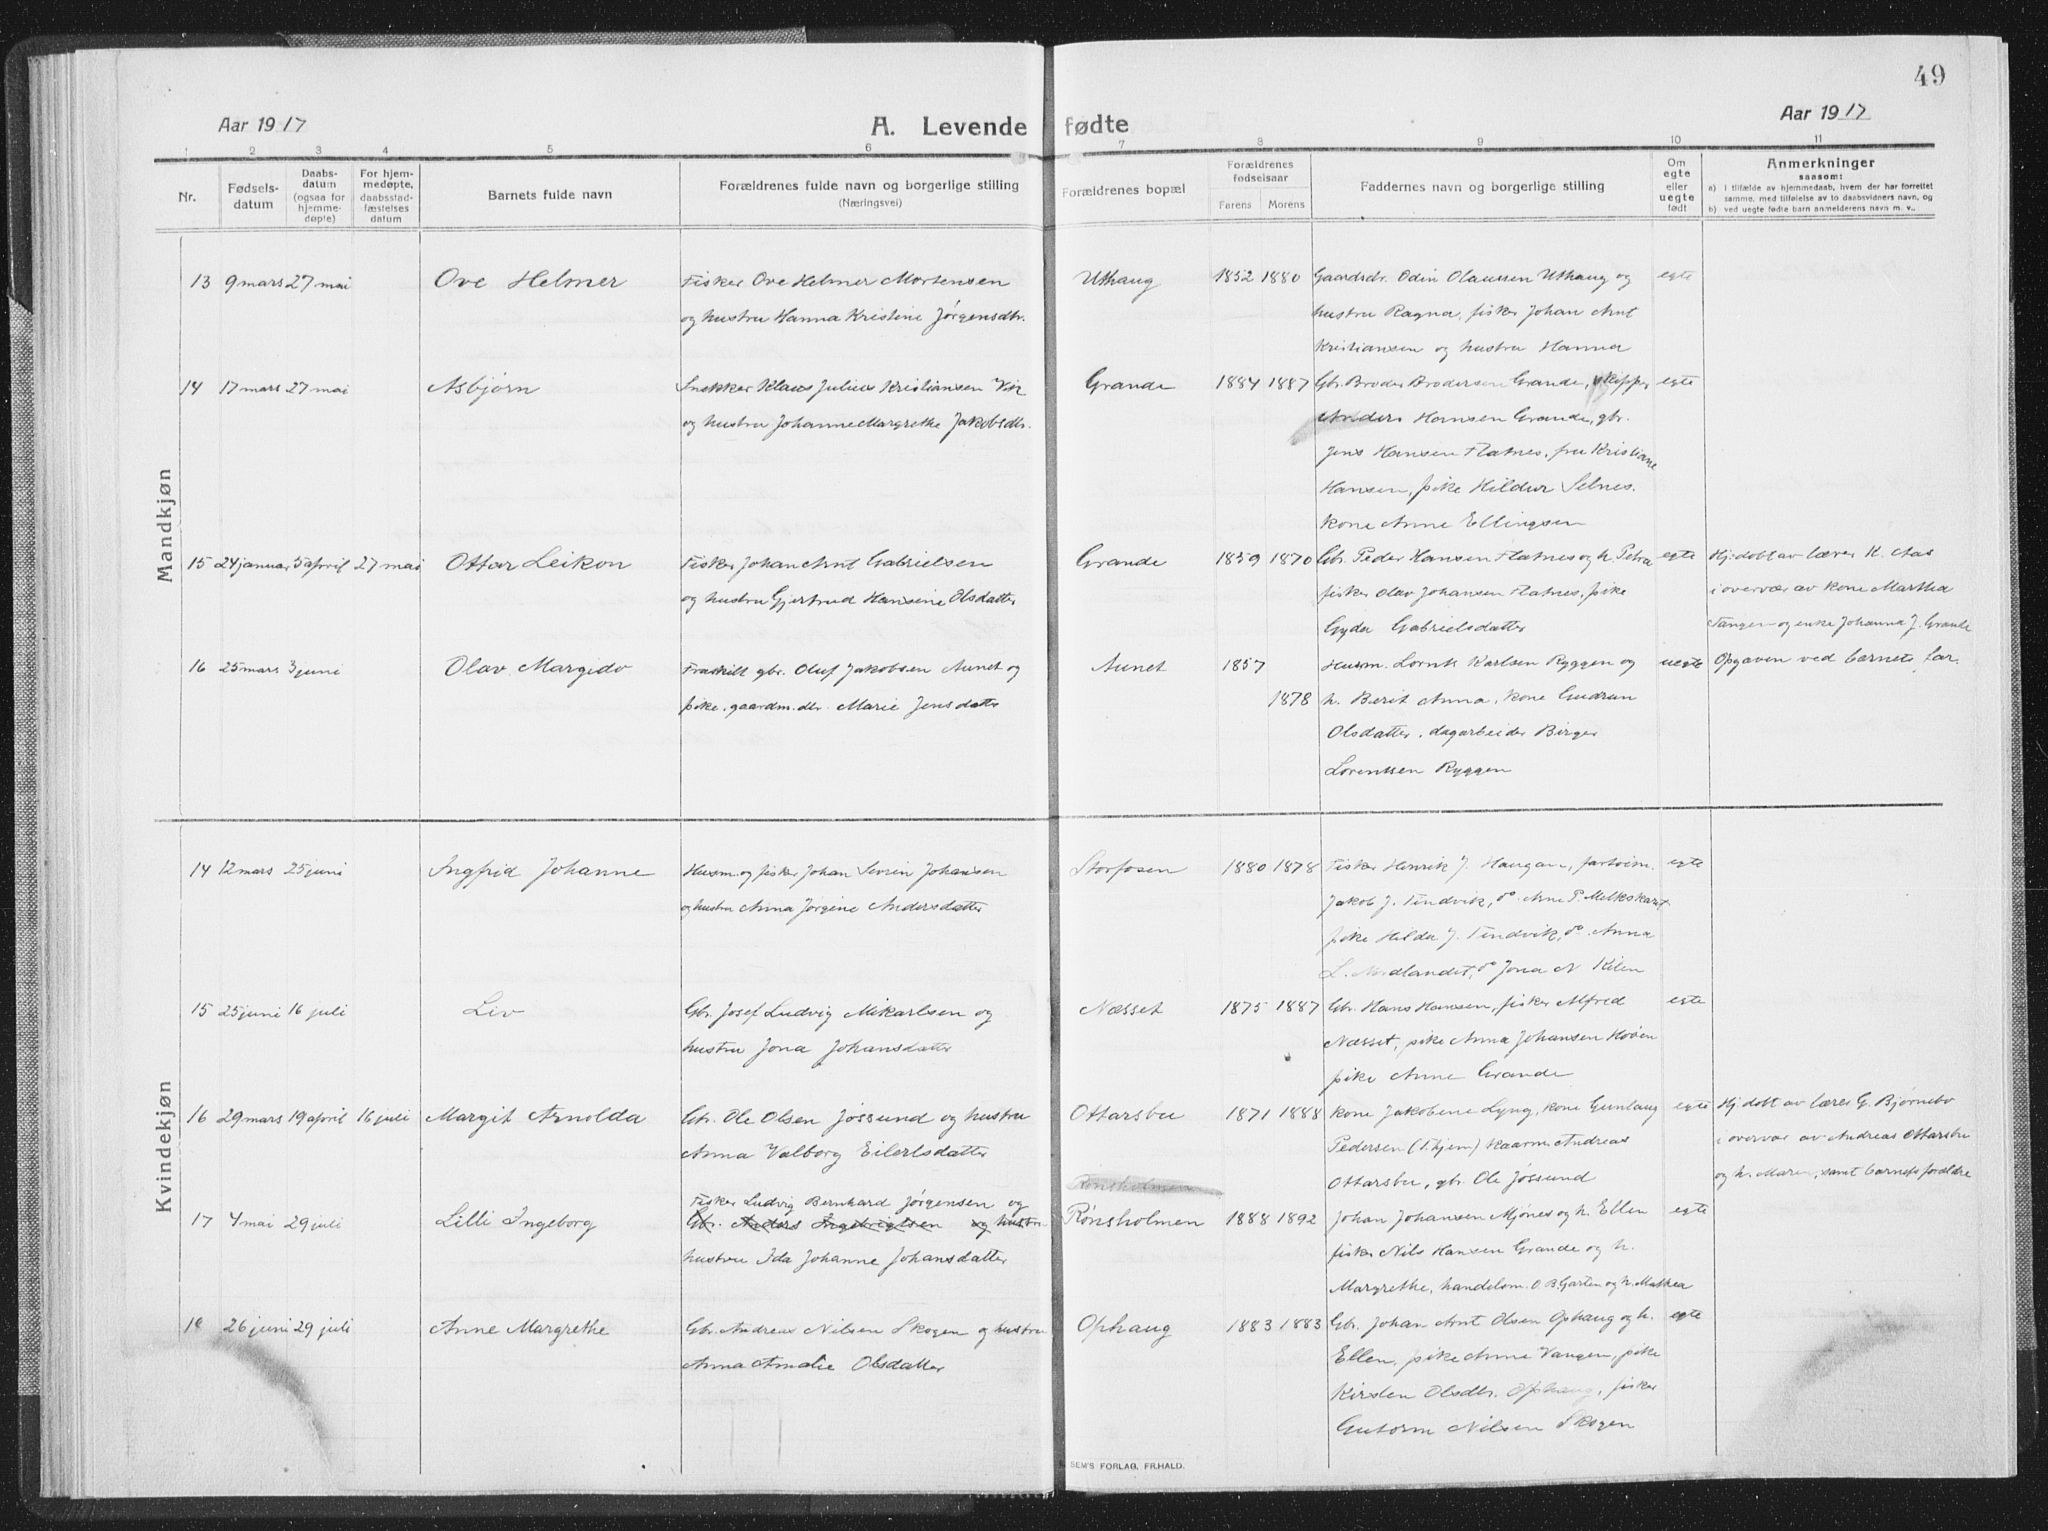 49
Aar 1917
A. Levende fødte
Aar 1917
1 2 3 4 5 6 7 8 9 10 11
Nr.
Fødsels-
datum
Daabs-
datum
(ogsaa for
hjemme-
døpte)
For hjem-
medøpte,
daabsstad-
fæstelses
datum
Barnets fulde navn
Forældrenes fulde navn og borgerlige stilling
(Næringsvei)
Forældrenes bopæl
Forældrenes
fødselsaar
Farens Morens
Faddernes navn og borgerlige stilling
Om
egte
eller
uegte
født
Anmerkninger
saasom:
a) i tilfælde av hjemmedaab, hvem der har forrettet
samme, med tilføielse av to daabsvidners navn, og
b) ved uegte fødte barn anmelderens navn m. v..
Mandkjøn
13 9 mars 27 mai Ove Helmer Fisker Ove Helmer Mortensen Uthaug 1852 1880 Gaardsdr. Odin Olaussen Uthaug og egte
og hustru Hanna Kristine Jørgensdtr. hustru Ragna, fisker Johan Arnt
Kristiansen og hustru Hanna
14 17 mars 27 mai Asbjørn Snekker Klaus Julius Kristiansen Vik Grande 1884 1887 Gbr. Broder Brodersen Grande, skipper egte
og hustru Johanne Margrethe Jakobsdtr. Anders Hansen Grande, gbr.
Jens Hansen Flatnes, fru Kristiane
Hansen, pike Hildur Selnes.
kone Anne Ellingsen
15 24 januar 5 april 27 mai Ottar Leikon Fisker Johan Arnt Gabrielsen Grande 1859 1870 Gbr. Peder Hansen Flatnes og h. Petra egte Hj. døbt av lærer K. Aas
og hustru Gjertrud Hansine Olsdatter fisker Olav Johansen Flatnes, pike i overvær av kone Martha
Gyda Gabrielsdatter Tangen og enke Johanna J. Grande
16 25 mars 3 juni Olav Margido Fraskilt gbr. Oluf Jakobsen Aunet og Aunet 1857 Husm. Lornts Karlsen Ryggen og uegte Opgaven ved barnets far.
pike, gaardm. dtr. Marie Jensdatter 1878 h. Berit Anna, kone Gudrun
Olsdatter, dagarbeider Birger
Lorentsen Ryggen
Kvindekjøn
14 12 mars 25 juni Ingfrid Johanne Husm. og fisker Johan Sevrin Johansen Storfosen 1880 1878 Fisker Henrik J. Haugan, partseier egte
og hustru Anna Jørgine Andersdatter Jakob J. Tindvik, do Arne P. Melkskaret
pike Hilda J. Tindvik, do Anna
L. Mødlandet, do Jona N Kilen
15 25 juni 16 juli Liv Gbr. Josef Ludvig Mikarlsen og Næsset 1875 1887 Gbr. Hans Hansen, fisker Alfred egte
hustru Jona Johansdatter Næsset, pike Anna Johansen Hoøen
pike Anne Grande
16 29 mars 19 april 16 juli Margit Arnolda Gbr. Ole Olsen Jøssund og hustru Ottarsbu 1871 1888 kone Jakobene Lyng, kone Gunlaug egte Hj. døbt av lærer G. Bjørnebo
Anna Valborg Eilertsdatter Pedersen (T.hjem) kaarm. Andreas i overvær av Andreas Ottarsbu
Rønsholmen Ottarsbu, gbr. Ole Jøssund og h. Maren, samt barnets forældre
Fisker Ludvig Bernhard Jørgensen og
17 4 mai 29 juli Lilli Ingeborg Gbr. Anders Ingebrigtsen og hustru Rønsholmen 1888 1892 Johan Johansen Mjønes og h. Ellen egte
hustru Ida Johanne Johansdatter fisker Nils Hansen Grande og h.
Margrethe, handelsm. O. B. Garten og h. Mathea
18 26 juni 29 juli Anne Margrethe Gbr. Andreas Nilsen Skogen og hustru Ophaug 1883 1883 Gbr. Johan Arnt Olsen Ophaug og h. egte
Anna Amalie Olsdatter Ellen, pike Anne Vangen, pike
Kirsten Olsdtr. Ophaug, fisker
Gutorm Nilsen Skogen
SEM'S FORLAG, FR.HALD.